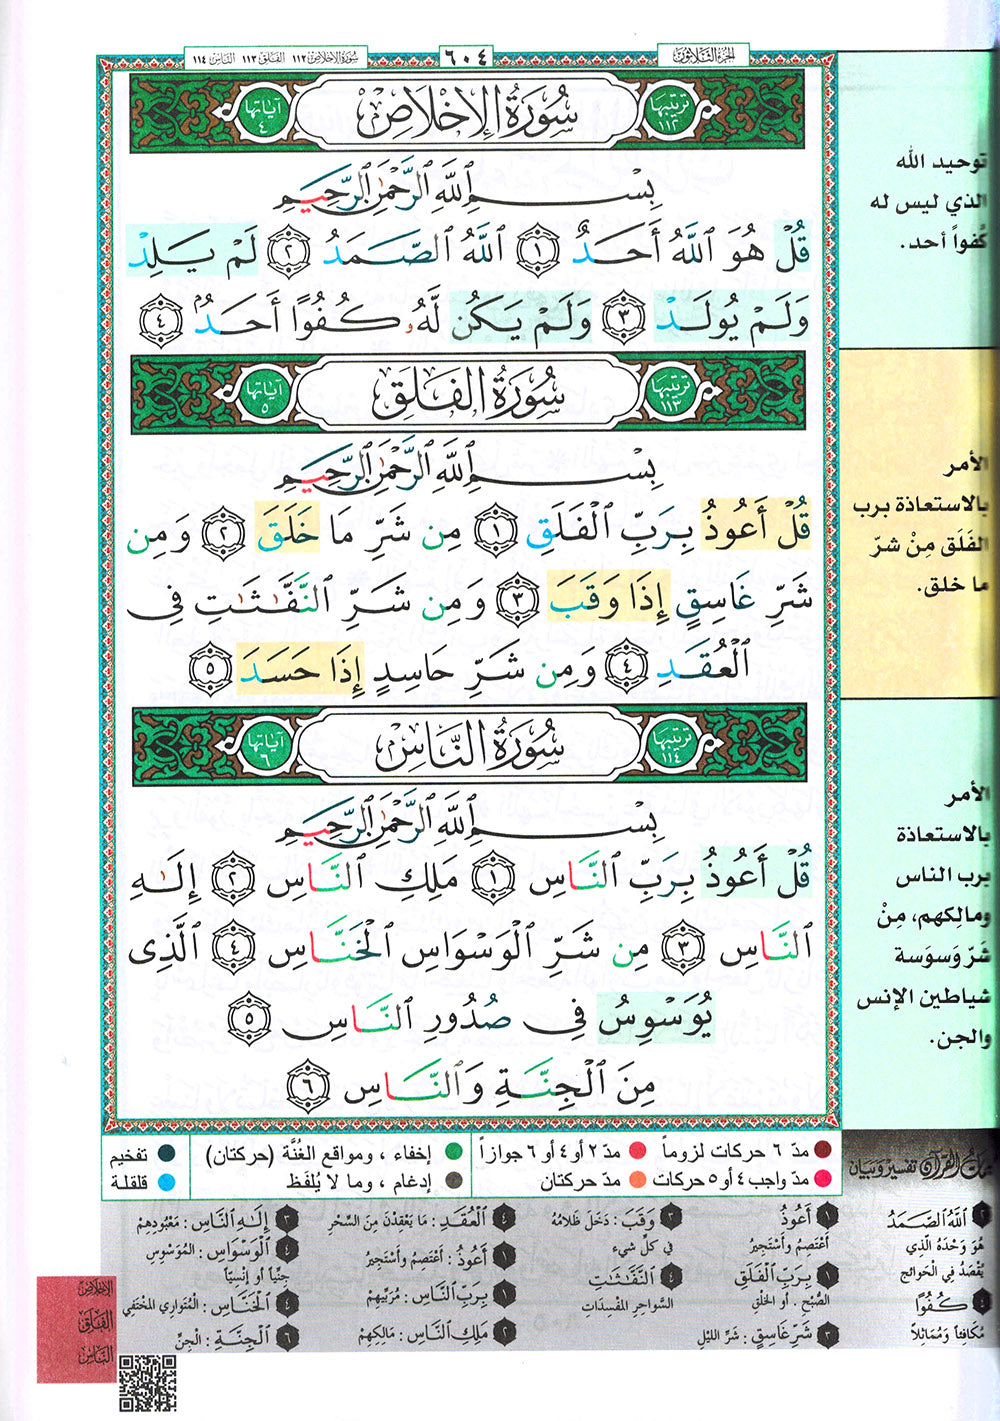 الجزء الثلاثون
٦٠٤
سورة الإخلاص ١١٢ الفلق ١١٣ الناس ١١٤
ترتيبها ١١٢
سُورَةُ الإِخْلَاصِ
آياتها ٤
بِسْمِ ٱللَّهِ ٱلرَّحْمَٰنِ ٱلرَّحِيمِ
قُلْ هُوَ ٱللَّهُ أَحَدٌ ١ ٱللَّهُ ٱلصَّمَدُ ٢ لَمْ يَلِدْ
وَلَمْ يُولَدْ ٣ وَلَمْ يَكُن لَّهُۥ كُفُوًا أَحَدٌۢ ٤
ترتيبها ١١٣
سُورَةُ الفَلَقِ
آياتها ٥
بِسْمِ ٱللَّهِ ٱلرَّحْمَٰنِ ٱلرَّحِيمِ
قُلْ أَعُوذُ بِرَبِّ ٱلْفَلَقِ ١ مِن شَرِّ مَا خَلَقَ ٢ وَمِن
شَرِّ غَاسِقٍ إِذَا وَقَبَ ٣ وَمِن شَرِّ ٱلنَّفَّٰثَٰتِ فِى
ٱلْعُقَدِ ٤ وَمِن شَرِّ حَاسِدٍ إِذَا حَسَدَ ٥
ترتيبها ١١٤
سُورَةُ النَّاسِ
آياتها ٦
بِسْمِ ٱللَّهِ ٱلرَّحْمَٰنِ ٱلرَّحِيمِ
قُلْ أَعُوذُ بِرَبِّ ٱلنَّاسِ ١ مَلِكِ ٱلنَّاسِ ٢ إِلَٰهِ
ٱلنَّاسِ ٣ مِن شَرِّ ٱلْوَسْوَاسِ ٱلْخَنَّاسِ ٤ ٱلَّذِى
يُوَسْوِسُ فِى صُدُورِ ٱلنَّاسِ ٥
مِنَ ٱلْجِنَّةِ وَٱلنَّاسِ ٦
توحيد الله
الذي ليس له
كُفواً أحد.
الأمر
بالاستعاذة برب
الفَلَق مِنْ شرّ
ما خلق.
الأمر
بالاستعاذة
برب الناس
ومالِكهم، مِنْ
شرّ وَسوَسة
شياطين الإنس
والجن.
مدّ ٦ حركات لزوماً
مدّ ٢ أو ٤ أو ٦ جوازاً
إخفاء ، ومواقع الغُنَّة (حركتان)
تفخيم
مدّ واجب ٤ أو ٥ حركات
مدّ حركتان
إدغام ، وما لا يُلفَظ
قلقلة
القرآن تفسير وبيان
٢ ٱللَّهُ ٱلصَّمَدُ
هُوَ وَحْدَهُ الَّذِي
يُقْصَدُ فِي الْحَوائج
٤ كُفُوًا
مُكَافِئاً وَمُمَاثِلاً
١ أَعُوذُ
أَعْتَصِمُ وأَسْتَجِيرُ
١ بِرَبِّ ٱلْفَلَقِ
الصُّبْحِ . أو الخَلْقِ
٣ شَرِّ غَاسِقٍ : شَرِّ اللَّيْلِ
٣ وَقَبَ : دَخَلَ ظَلامُهُ
في كلِّ شيء
٤ ٱلنَّفَّٰثَٰتِ
السَّواحِرِ المُفْسِدَاتِ
٤ ٱلْعُقَدِ : مَا يَعْقِدْنَ مِنَ السِّحْرِ
١ أَعُوذُ : أَعْتَصِمُ وأَسْتَجِيرُ
١ بِرَبِّ ٱلنَّاسِ : مُرَبِّيهِمْ
٢ مَلِكِ ٱلنَّاسِ : مَالِكِهِمْ
٣ إِلَٰهِ ٱلنَّاسِ : مَعْبُودِهِمْ
٤ ٱلْوَسْوَاسِ : المُوَسْوِسِ
جِنِّياً أو إنْسِيّاً
٤ ٱلْخَنَّاسِ : المُتَوَارِي المُخْتَفِي
٦ ٱلْجِنَّةِ : الْجِنِّ
الإخلاص
الفلق
الناس